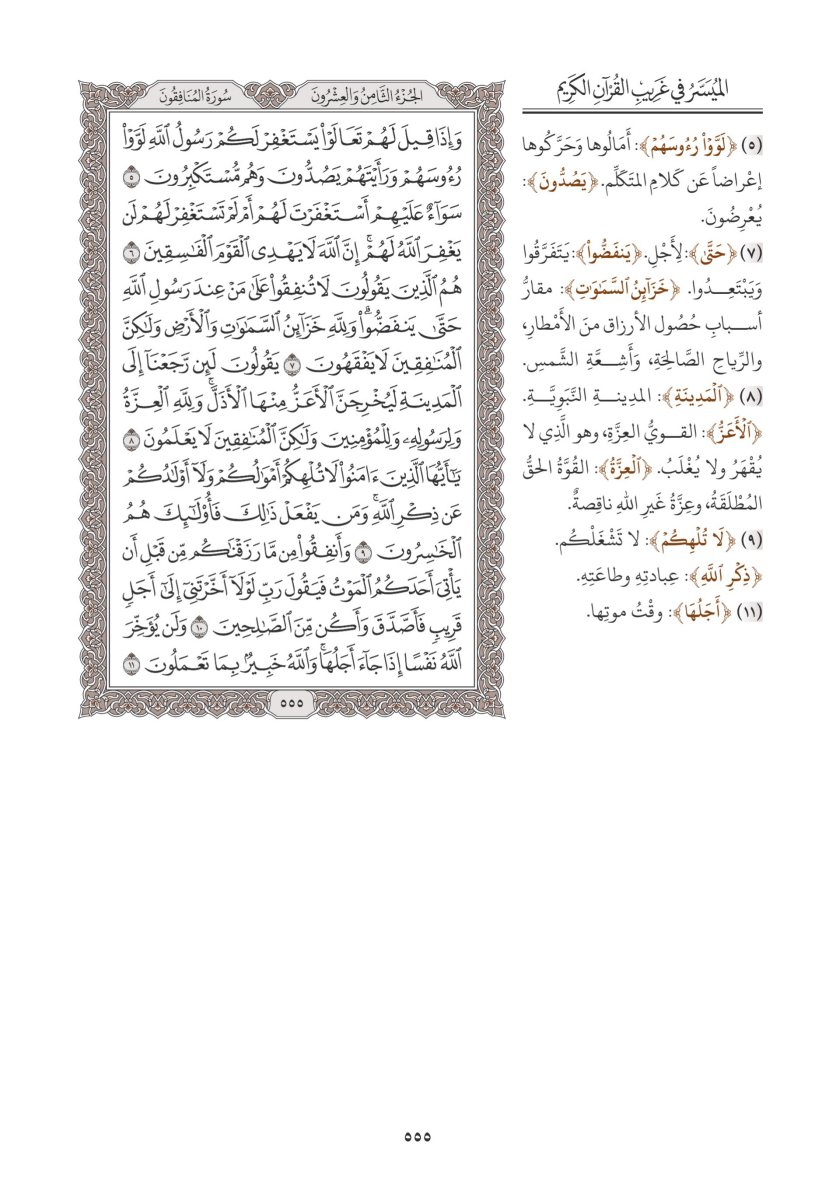 الميَسَّرُ في غَرِيبِ القُرْآنِ الكَرِيم
(٥) ﴿لَوَّوۡاْ رُءُوسَهُمۡ﴾: أَمَالُوها وَحَرَّكُوها
إعْراضاً عَن كَلامِ المتَكَلِّم. ﴿يَصُدُّونَ﴾:
يُعْرِضُونَ.
(٧) ﴿حَتَّىٰ﴾: لِأَجْلِ. ﴿يَنفَضُّواْ﴾: يَتَفَرَّقُوا
وَيَبْتَعِــدُوا. ﴿خَزَآئِنُ ٱلسَّمَٰوَٰتِ﴾: مقارُّ
أســبابِ حُصُول الأرزاق منَ الأَمْطارِ،
والرِّياحِ الصَّالحَةِ، وَأَشِــعَّةِ الشَّمسِ.
(٨) ﴿ٱلۡمَدِينَةِ﴾: المدِينــةِ النَّبَوِيَّــةِ.
﴿ٱلۡأَعَزُّ﴾: القــويُّ العِزَّةِ، وهو الَّذِي لا
يُقْهَرُ ولا يُغْلَبُ. ﴿ٱلۡعِزَّةُ﴾: القُوَّةُ الحقُّ
المُطْلَقَةُ، وعِزَّةُ غَيرِ اللهِ ناقِصةٌ.
(٩) ﴿لَا تُلۡهِكُمۡ﴾: لا تَشْغَلْكُم.
﴿ذِكۡرِ ٱللَّهِ﴾: عِبادتِهِ وطاعَتِهِ.
(١١) ﴿أَجَلُهَا﴾: وقْتُ موتِها.
الجُزْءُ الثَّامِنُ وَالعِشْرُونَ سُورَةُ المُنَافِقُونَ
وَإِذَا قِيلَ لَهُمۡ تَعَالَوۡاْ يَسۡتَغۡفِرۡ لَكُمۡ رَسُولُ ٱللَّهِ لَوَّوۡاْ
رُءُوسَهُمۡ وَرَأَيۡتَهُمۡ يَصُدُّونَ وَهُم مُّسۡتَكۡبِرُونَ ٥
سَوَآءٌ عَلَيۡهِمۡ أَسۡتَغۡفَرۡتَ لَهُمۡ أَمۡ لَمۡ تَسۡتَغۡفِرۡ لَهُمۡ لَن
يَغۡفِرَ ٱللَّهُ لَهُمۡۚ إِنَّ ٱللَّهَ لَا يَهۡدِي ٱلۡقَوۡمَ ٱلۡفَٰسِقِينَ ٦
هُمُ ٱلَّذِينَ يَقُولُونَ لَا تُنفِقُواْ عَلَىٰ مَنۡ عِندَ رَسُولِ ٱللَّهِ
حَتَّىٰ يَنفَضُّواْۗ وَلِلَّهِ خَزَآئِنُ ٱلسَّمَٰوَٰتِ وَٱلۡأَرۡضِ وَلَٰكِنَّ
ٱلۡمُنَٰفِقِينَ لَا يَفۡقَهُونَ ٧ يَقُولُونَ لَئِن رَّجَعۡنَآ إِلَى
ٱلۡمَدِينَةِ لَيُخۡرِجَنَّ ٱلۡأَعَزُّ مِنۡهَا ٱلۡأَذَلَّۚ وَلِلَّهِ ٱلۡعِزَّةُ
وَلِرَسُولِهِۦ وَلِلۡمُؤۡمِنِينَ وَلَٰكِنَّ ٱلۡمُنَٰفِقِينَ لَا يَعۡلَمُونَ ٨
يَٰٓأَيُّهَا ٱلَّذِينَ ءَامَنُواْ لَا تُلۡهِكُمۡ أَمۡوَٰلُكُمۡ وَلَآ أَوۡلَٰدُكُمۡ
عَن ذِكۡرِ ٱللَّهِۚ وَمَن يَفۡعَلۡ ذَٰلِكَ فَأُوْلَٰٓئِكَ هُمُ
ٱلۡخَٰسِرُونَ ٩ وَأَنفِقُواْ مِن مَّا رَزَقۡنَٰكُم مِّن قَبۡلِ أَن
يَأۡتِيَ أَحَدَكُمُ ٱلۡمَوۡتُ فَيَقُولَ رَبِّ لَوۡلَآ أَخَّرۡتَنِيٓ إِلَىٰٓ أَجَلٖ
قَرِيبٖ فَأَصَّدَّقَ وَأَكُن مِّنَ ٱلصَّٰلِحِينَ ١٠ وَلَن يُؤَخِّرَ
ٱللَّهُ نَفۡسًا إِذَا جَآءَ أَجَلُهَاۚ وَٱللَّهُ خَبِيرُۢ بِمَا تَعۡمَلُونَ ١١
٥٥٥
٥٥٥